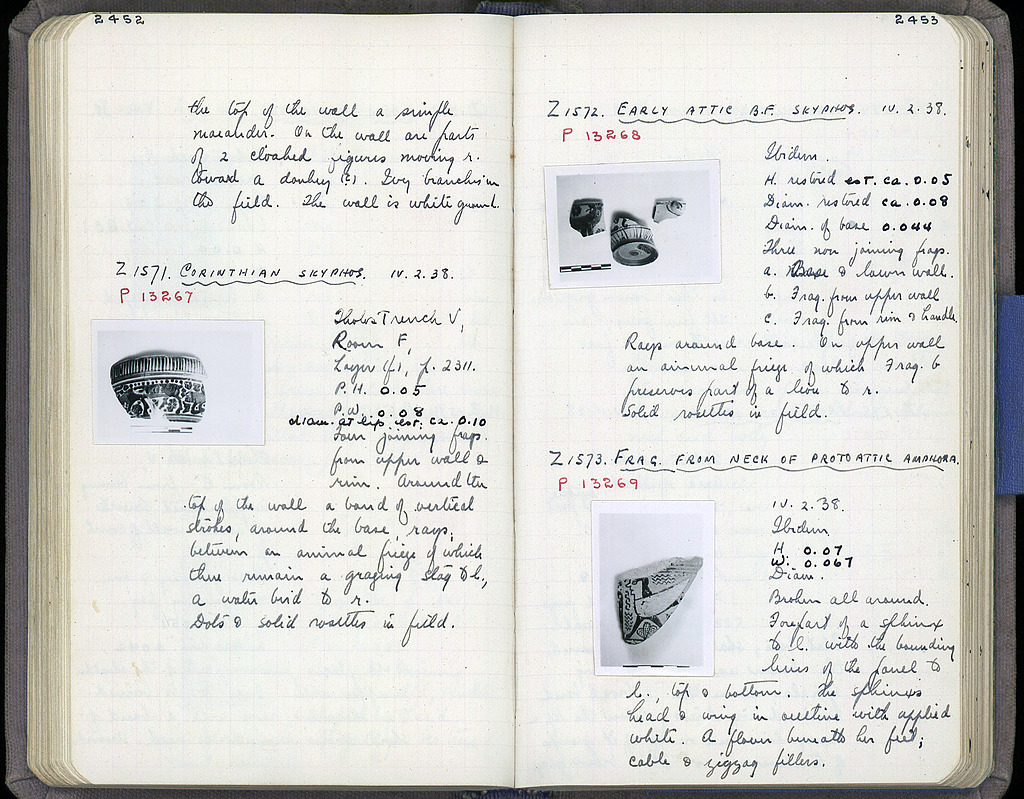 2452
the top of the wall a simple
maeander. On the wall are parts
of 2 cloaked figures moving r.
toward a donkey (?). Ivy branches in
the field. The wall is white ground.
Z 1571. CORINTHIAN SKYPHOS. IV. 2. 38.
P 13267
Tholos Trench V,
Room F,
Layer (f), p. 2311.
P.H. 0.05
P.W. 0.08
diam. at lip est. ca. 0.10
Four joining frags.
from upper wall &
rim. Around the
top of the wall a band of vertical
strokes, around the base, rays;
between an animal frieze of which
there remain a grazing stag to l.,
a water bird to r.
Dots & solid rosettes in field.
2453
Z 1572. EARLY ATTIC B.F. SKYPHOS. IV. 2. 38.
P 13268
Ibidem.
H. restored est. ca. 0.05
Diam. restored ca. 0.08
Diam. of base 0.044
Three non joining frags.
a. Base & lower wall.
b. Frag. from upper wall
c. Frag. from rim & handle.
Rays around base. On upper wall
an animal frieze of which Frag. b
preserves part of a lion to r.
Solid rosettes in field.
Z 1573. FRAG. FROM NECK OF PROTOATTIC AMPHORA.
P 13269
IV. 2. 38.
Ibidem.
H. 0.07
W. 0.067
Diam.
Broken all around.
Forepart of a sphinx
to l. with the bounding
lines of the panel to
l., top & bottom. The sphinxs
head & wing in outline with applied
white. A flower beneath her feet;
cable & zigzag fillers.